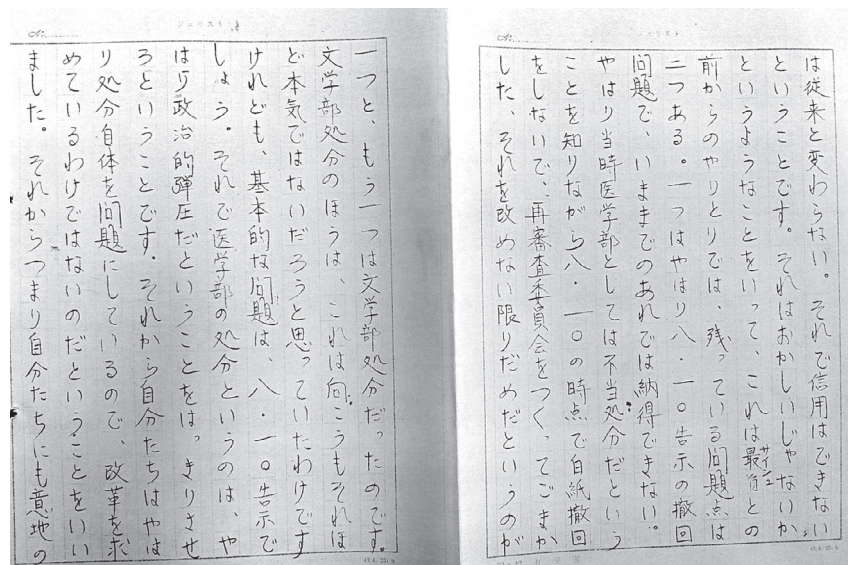 ジュリスト
は従来と変わらない。それで信用はできない
ということです。それはおかしいじゃないか
サイシュ
というようなことをいって、これは最首との
前からのやりとりでは、残っている問題点は
二つある。一つはやはり八・一〇告示の撤回
問題で、いままでのあれでは納得できない。
やはり当時医学部としては不当処分だという
ことを知りながら八・一〇の時点で白紙撤回
をしないで、再審査委員会をつくってごまか
した、それを改めない限りだめだというのが
ジュリスト
一つと、もう一つは文学部処分だったのです。
文学部処分のほうは、これは向こうもそれほ
ど本気ではないだろうと思っていたわけです
けれども、基本的な問題は、八・一〇告示で
しょう。それで医学部の処分というのは、や
はり政治的弾圧だということをはっきりさせ
ろということです。それから自分たちはやは
り処分自体を問題にしているので、改革を求
めているわけではないのだということをいい
ました。それからつまり自分たちにも意地の